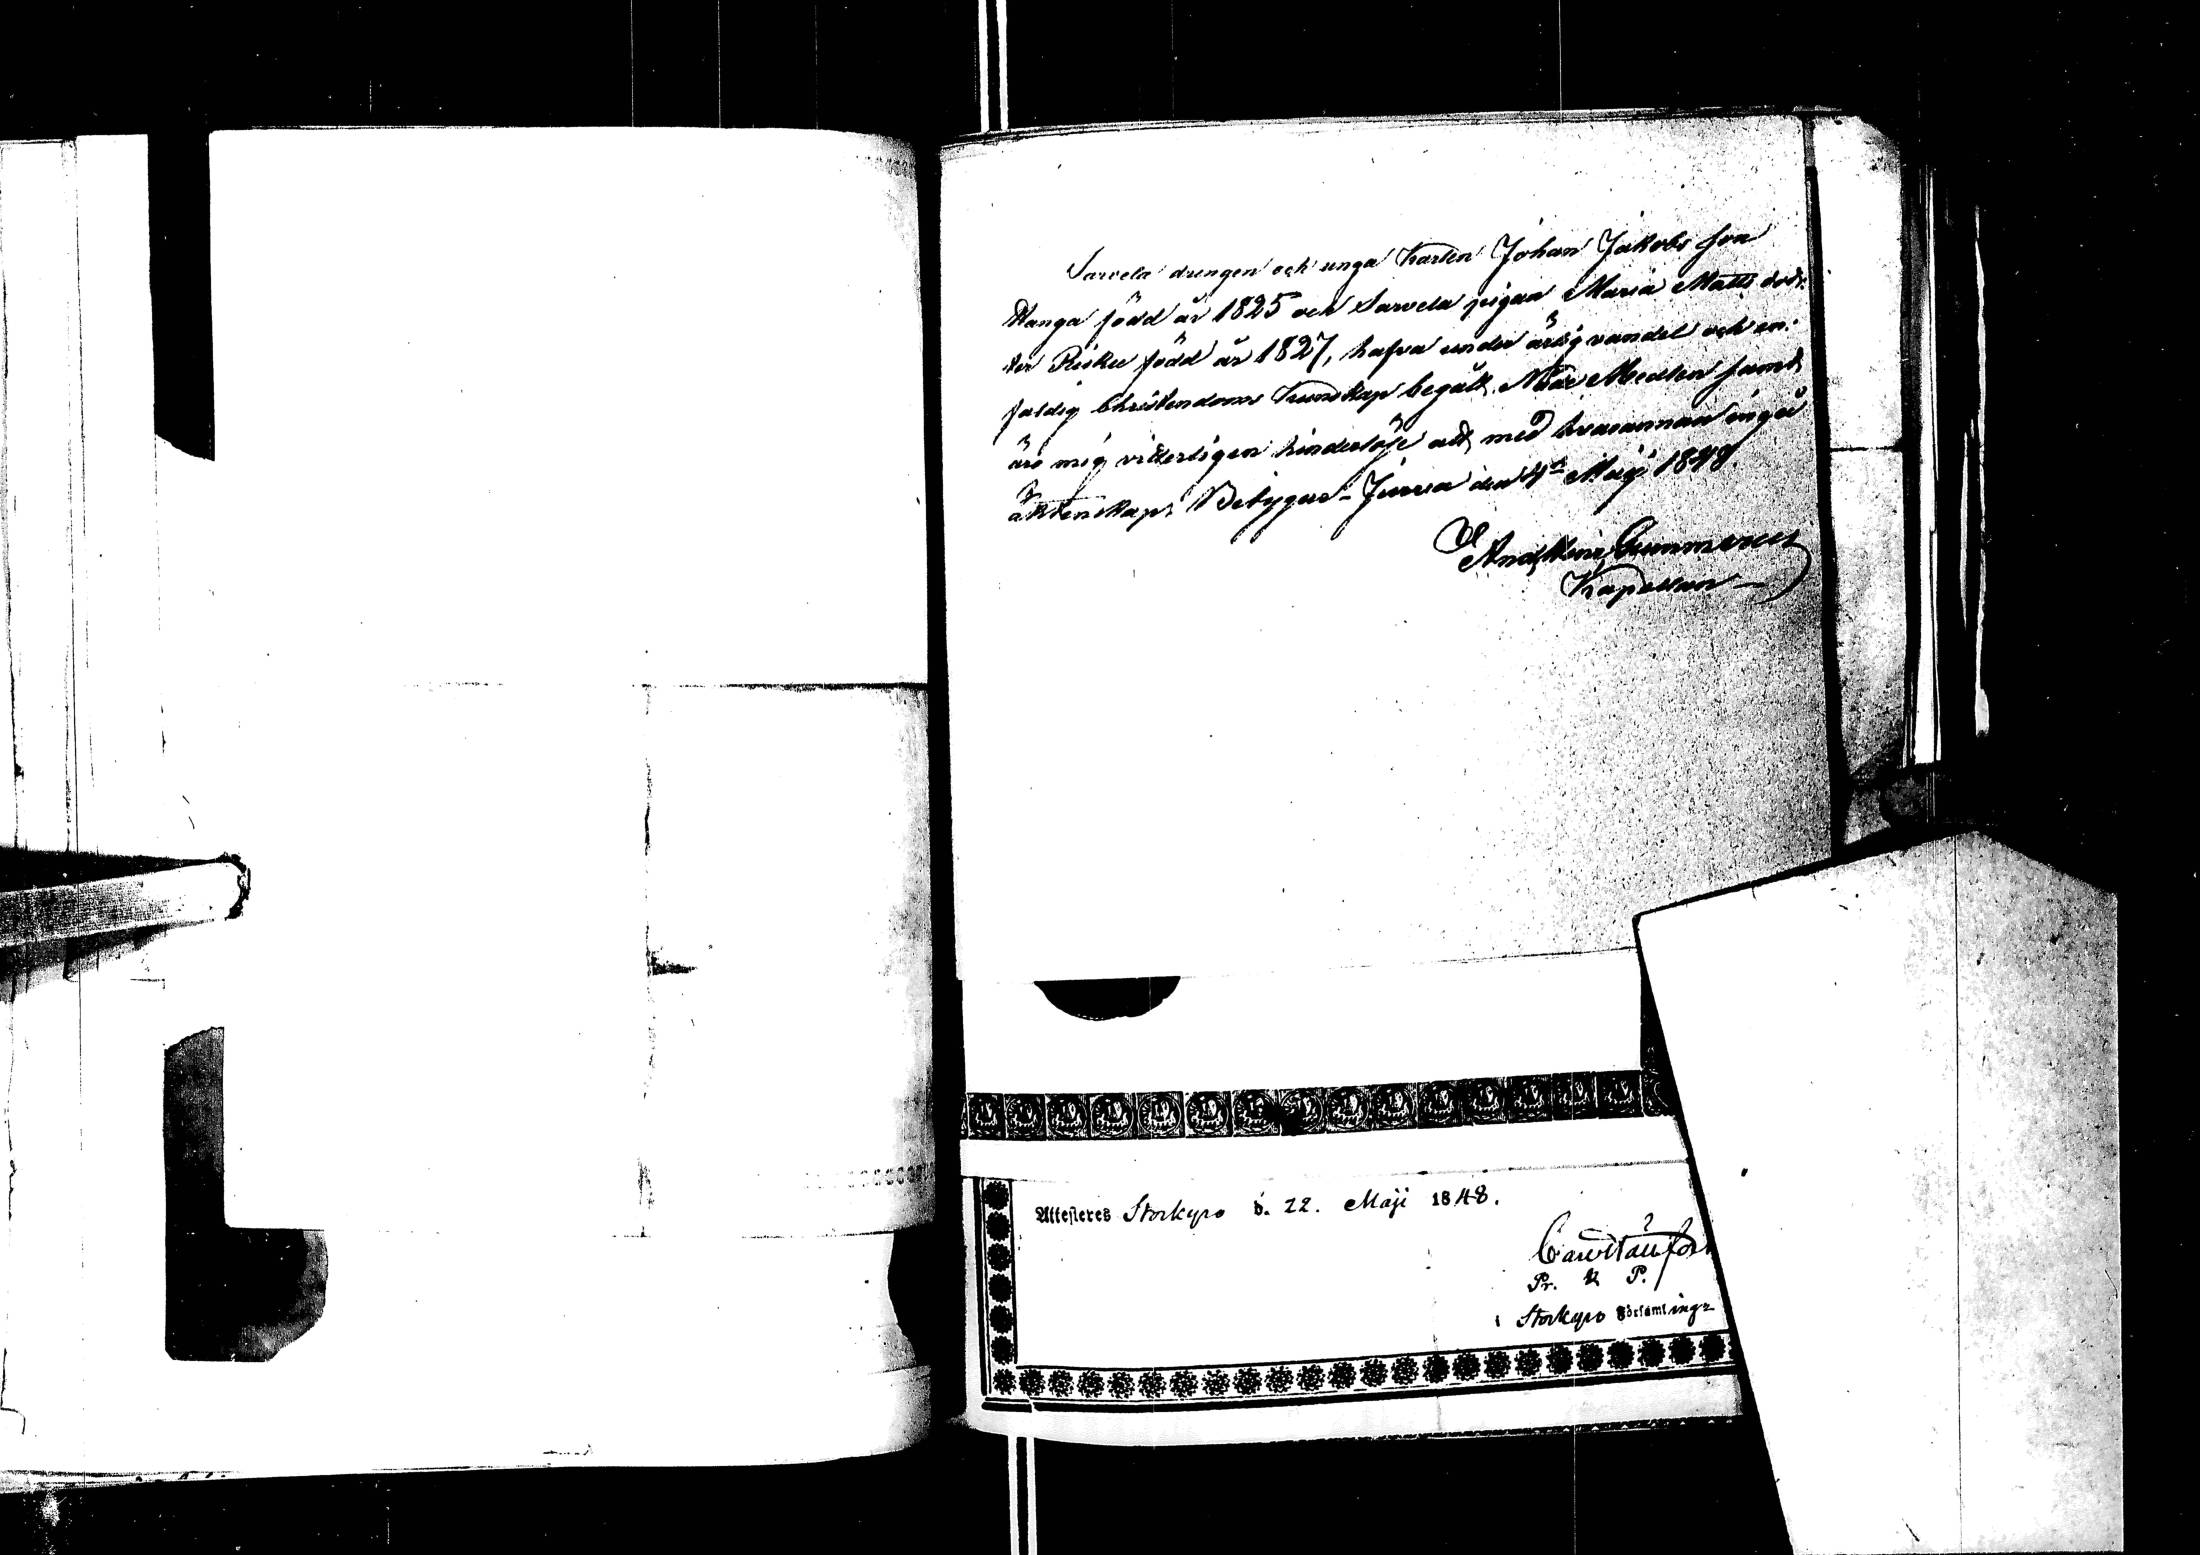 Sarvela drengen och unga karlen Johan Jakobs son
Kanga född år 1825 och Sarvela pigan Maria Matts dot-
ter Pisku född år 1827, hafva under ärlig vandel och en-
faldig Christendoms kunskap begått Nåde Medlen samt
äro mig vitterligen hinderlöse att med hvarannan ingå
äktenskap. Betygar Jurva den 4de Maij 1848.
And. Hen. Gummerus
Kapellan
Attesteres Storkyro d. 22. Maji 1848.
Pr. & P.
i Storkyro Församlings